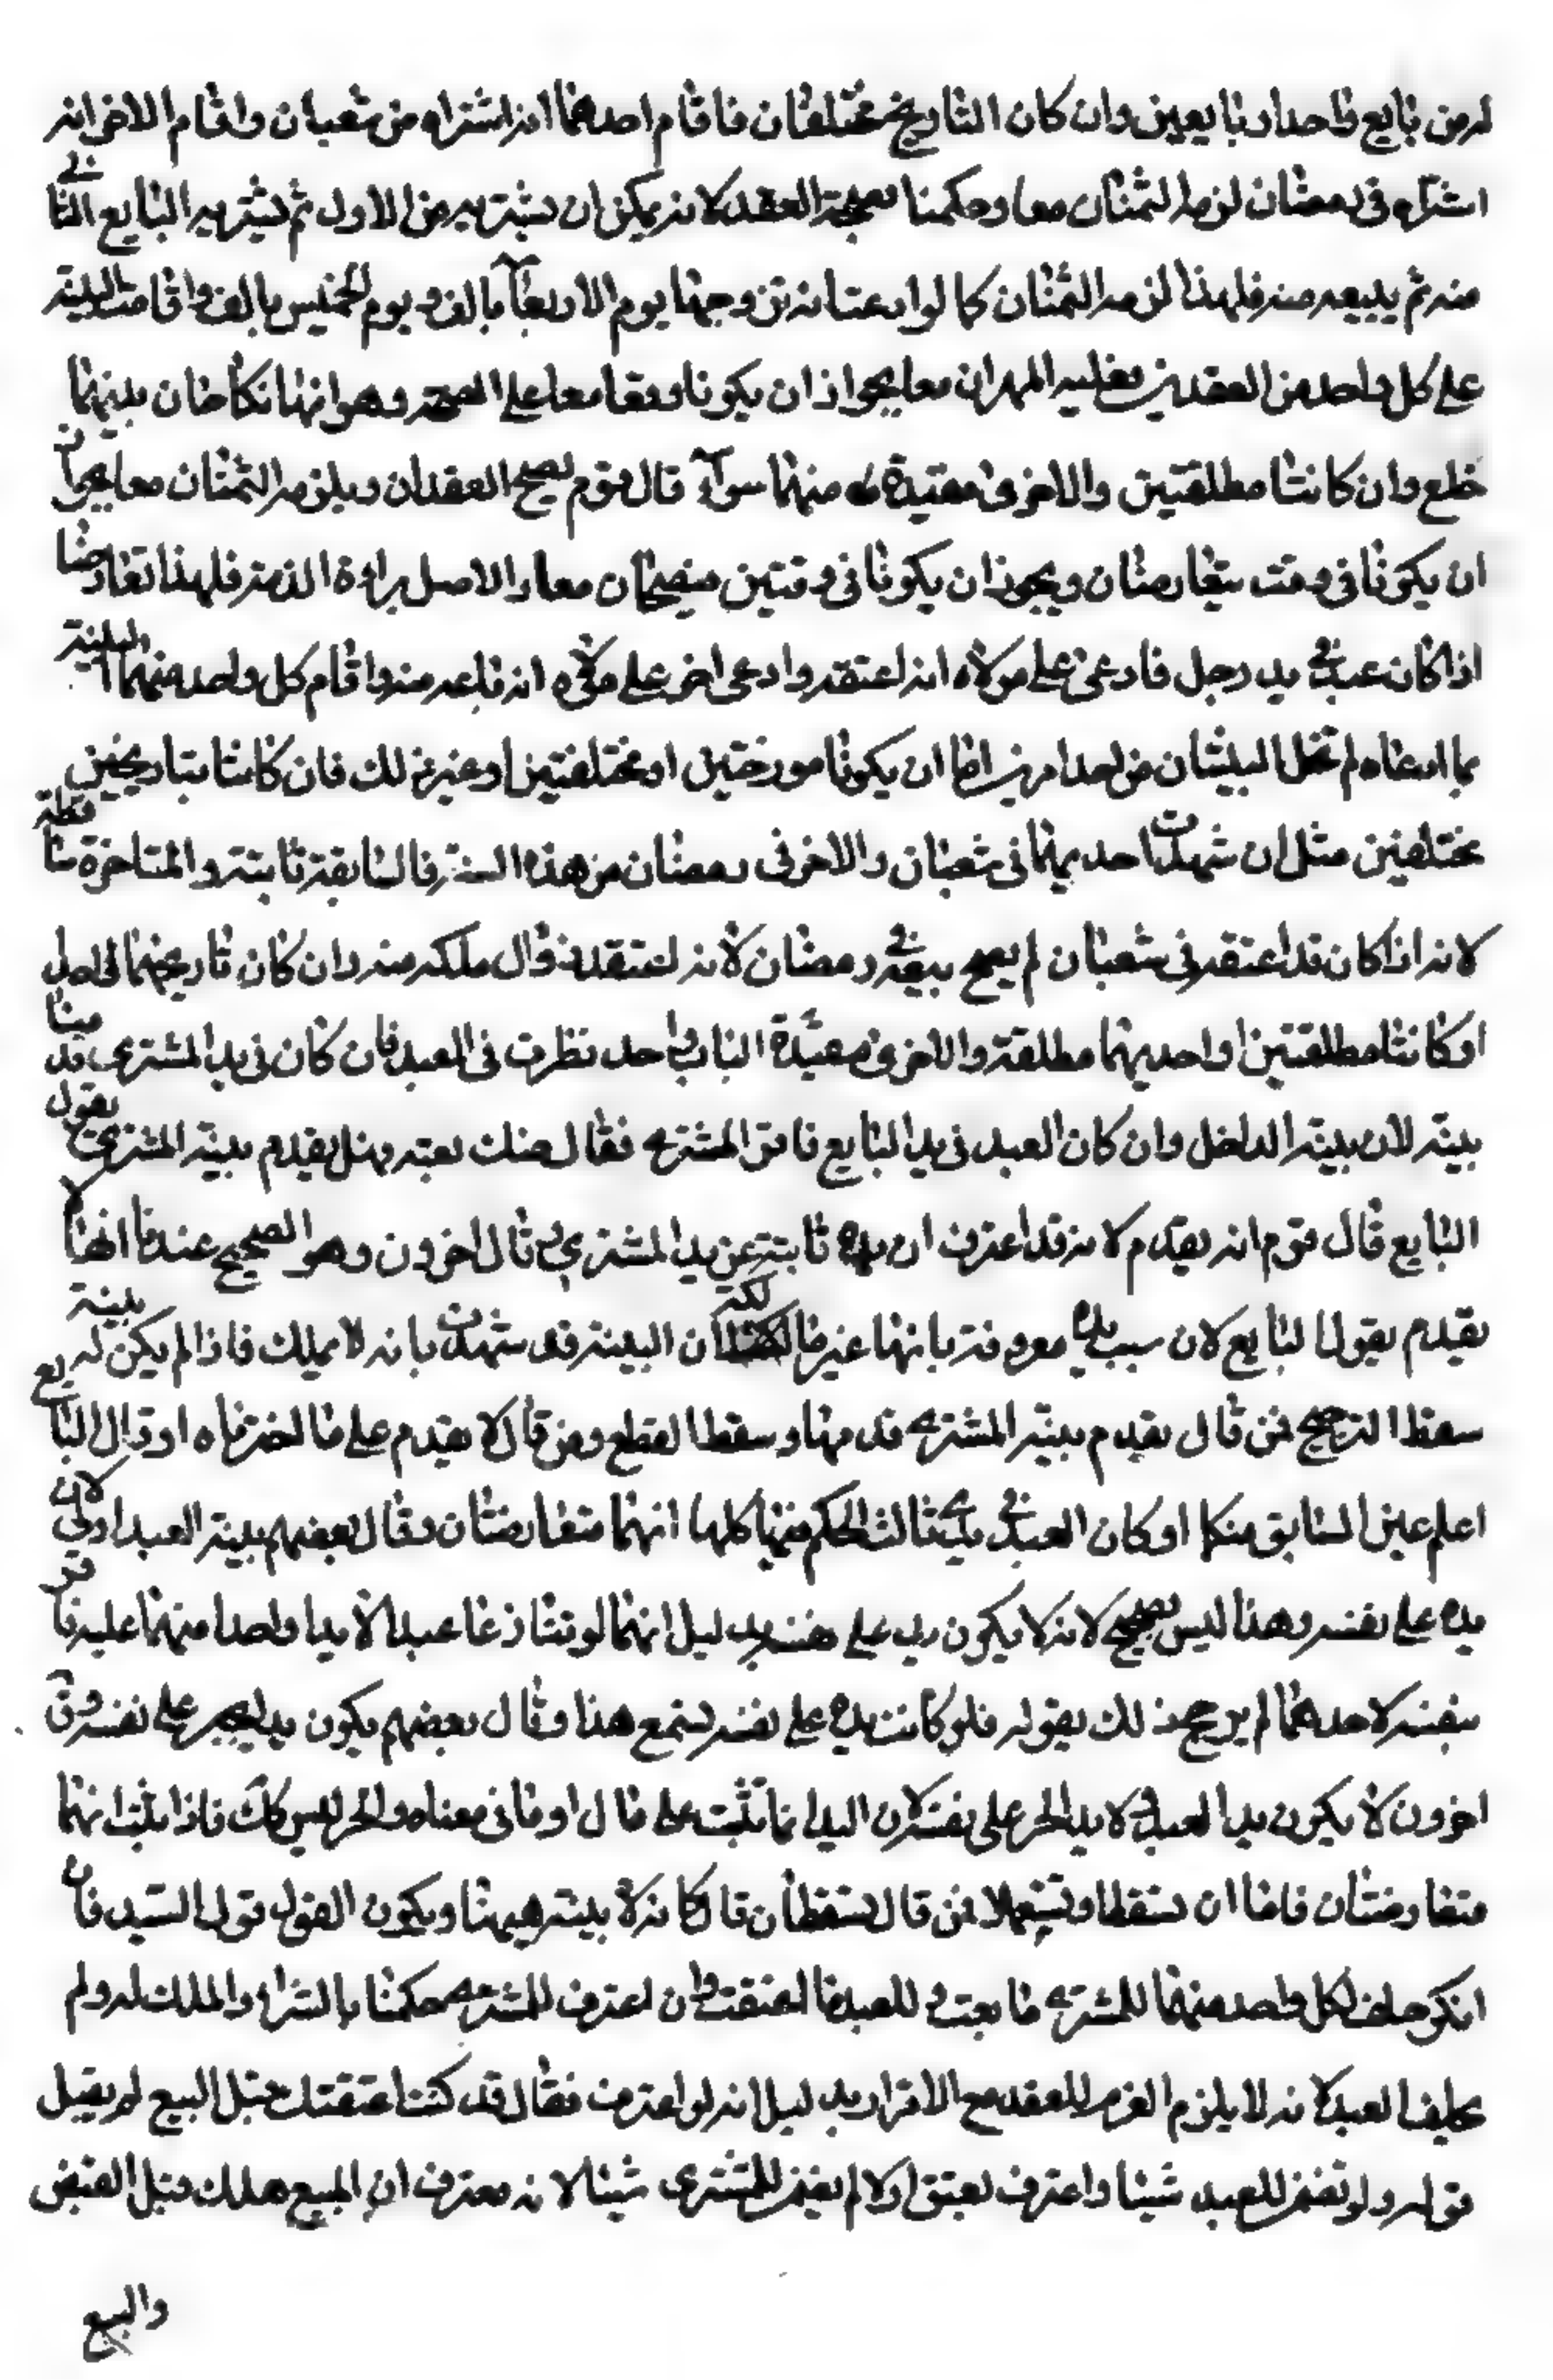 له من بايع واحد او بايعين وان كان التاريخ مختلفان فاقام احدهما انه اشتراه من شعبان واقام الاخر انه
اشتراه في رمضان لزمه الثمنان معا وحكمنا بصحة العقد لانه يمكن ان يشتريه من الاول ثم يشتريه البايع الثاني
منه ثم يبيعه منه فلهذا لزمه الثمنان كما لو ادعت انه تزوجها يوم الاربعاء بالف ويوم الخميس بالف واقامت البينة
على كل واحد من العقدين فعليه المهران معا لجواز ان يكونا وقعا معا على الصحة وهو انهما نكاحان بينهما
خلع وان كانتا مطلقتين والاخرى مقيدة منهما سواء قال قوم يصح العقدان ويلزمه الثمنان معا لجواز
ان يكونا في وقت يتعارضان ويجوز ان يكونا في وقتين فيصحان معا والاصل براءة الذمة فلهذا تعارضا
اذا كان عبد في يد رجل فادعى على مولاه انه اعتقه وادعى اخر على مولاه انه باعه منه واقام كل واحد منهما البينة
بما ادعاه لم تخل البينتان من احد امرين اما ان يكونا مورختين او مختلفتين او غير ذلك فان كانتا بتاريخين
مختلفين مثل ان شهدت احديهما في شعبان والاخر في رمضان من هذه السنة فالسابقة ثابتة والمتاخرة ساقطة
لانه اذا كان قد اعتقه في شعبان لم يصح بيعه في رمضان لانه اعتقد زوال ملكه منه وان كان تاريخهما واحدا
او كانتا مطلقتين او احديهما مطلقة والاخرى مقيدة الباب واحد نظرت في العبد فان كان في يد المشتري قدمنا
بينته لان بينته الداخل وان كان العبد في يد البايع فاقر المشتري فقال صدقت بعته وهل يقدم بينة المشتري بقول
البايع قال قوم انه يقدم لانه قد اعترف ان يده ثابتة عن يد المشتري وقال اخرون وهو الصحيح عندنا انها لا
يقدم بقول البايع لان سبب يده معروفة بانها غير مالكة لان البينة قد شهدت بانه لا يملك فاذا لم يكن له بينة
سقط الترجيح فمن قال يقدم بينة المشتري قدمها وسقط القطع ومن قال لا يقدم على ما اخترناه او قال البايع
اعلم عين السابق منكما او كان العبد في يد ثالث الحكم فيها كلها انهما متعارضتان وقال بعضهم بينة العبد اولى لان
يده على نفسه وهذا ليس بصحيح لانه لا يكون يده على نفسه بدليل انهما لو تنازعا عبدا لا يد لواحد منهما عليه فاقر
بنفسه لاحدهما لم يرجح ذلك بقوله فلو كانت يده على نفسه لسمع هذا وقال بعضهم يكون يد الحر على نفسه وقال
اخرون لا يكون يد العبد ولا يد الحر على نفسه لان اليد انما تثبت على مال او ما في معناه والحر ليس كذلك فاذا ثبت انهما
متعارضتان فاما ان تسقطا او تستعملا فمن قال تسقطان قال كانه لا بينة هيهنا ويكون القول قول السيد فان
انكر حلف لكل واحد منهما للمشتري ما بعت وللعبد ما اعتقت وان اعترف للمشتري حكمنا بالشراء والملك له ولم
يحلف العبد لانه لا يلزم الغرم للعقد مع الاقرار بدليل انه لو اعترف فقال قد كنت اعتقتك قبل البيع لم يقبل
قوله ولو تضمن للعبد شيئا واعترف بعتق اولا لم يغرم للمشتري شيئا لانه معترف ان المبيع هلك قبل القبض
والبيع